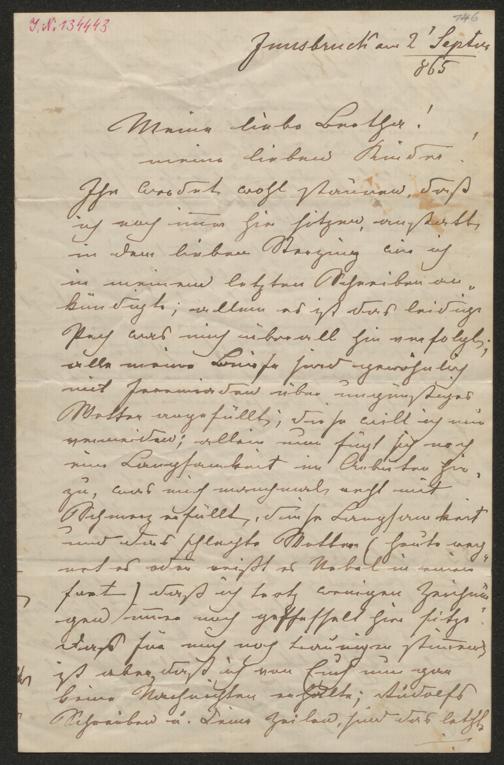 J.N. 134443
146
Innsbruck am 2t Septer
865
Meine liebe Bertha!
meine lieben Kinder!
Ihr werdet wohl staunen, daß
ich noch immer hier sitze, anstatt
in dem lieben Sterzing wie ich
in meinem letzten Schreiben an„
kündigte; allein es ist das leidige
Pech was mich überall hin verfolgt;
alle meine Briefe sind gewöhnlich
mit Jeremiaden über ungünstiges
Wetter angefüllt; diese will ich nun
vermeiden; allein nun fügt sich noch
eine Langsamkeit im Arbeiten hin„
zu, was mich manchmal recht mit
Schmerz erfüllt, diese Langsamkeit
und das schlechte Wetter (heute reg„
net es oder reißt es Nebel in einem
fort) daß ich trotz wenigen Zeichnun„
gen immer noch gefesselt hier sitze.
Was für mich noch trauriger stimmend
ist aber, daß ich von Euch nun gar
keine Nachrichten erhalte; Rudolfs
Schreiben u. Deine Zeilen, sind das letzte